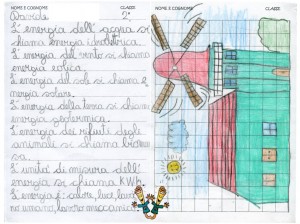 NOME E COGNOME CLASSE
Davide 2ª
L'energia dell'acqua si
chiama energia idroelettrica.
L'energia del vento si chiama
energia eolica.
L'energia del sole si chiama e
nergia solare.
L'energia della terra si chiama
energia geotermica.
L'energia dei rifiuti degli
animali si chiama biomas
sa.
L'unità di misura dell'
energia si chiama KWh.
L'energia è: calore, luce, lavo
ro umano, lavoro meccanico.
NOME E COGNOME CLASSE